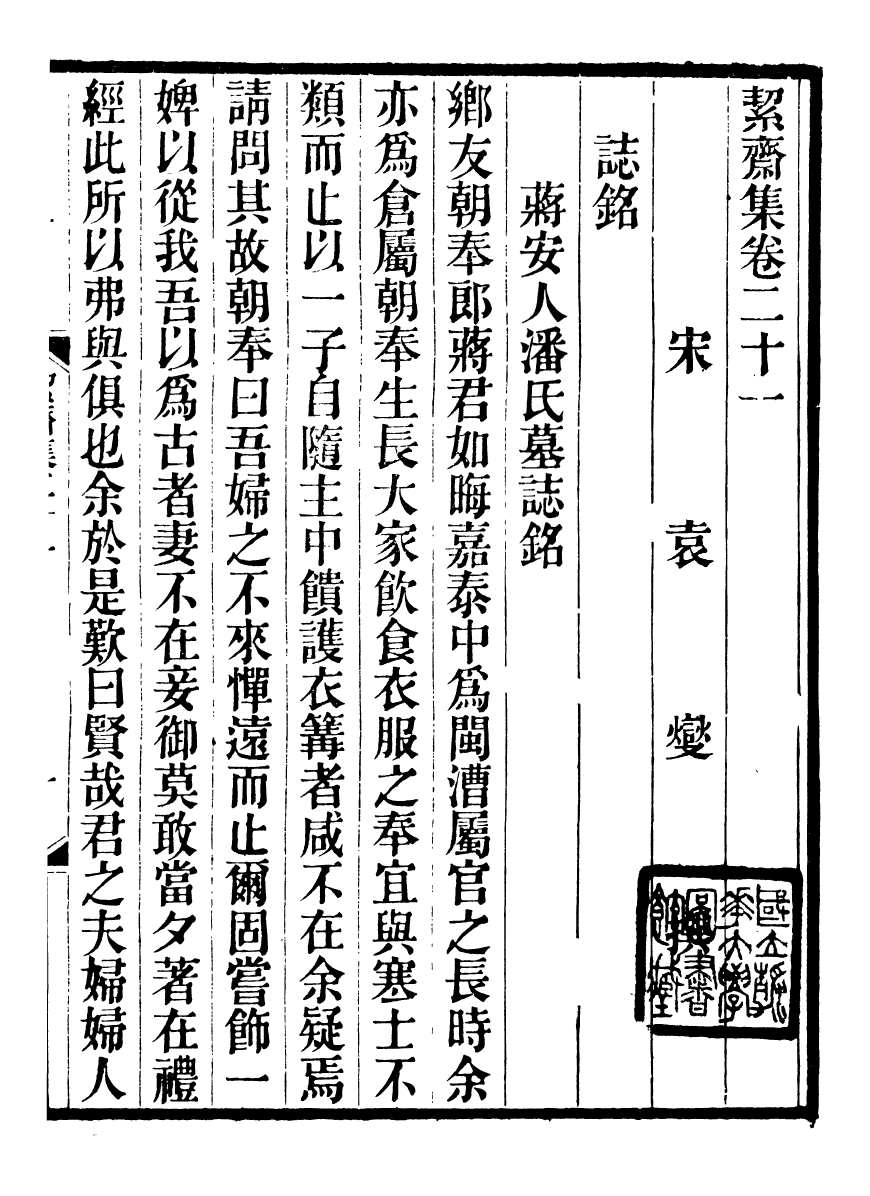 絜齋集卷二十一
宋 袁 燮
誌銘
蔣安人潘氏墓誌銘
鄉友朝奉郎蔣君如晦嘉泰中為閩漕屬官之長時余
亦為倉屬朝奉生長大家飲食衣服之奉宜與寒士不
類而止以一子自隨主中饋護衣篝者咸不在余疑焉
請問其故朝奉曰吾婦之不來憚遠而止爾固嘗飾一
婢以從我吾以為古者妻不在妾御莫敢當夕著在禮
經此所以弗與俱也余於是歎曰賢哉君之夫婦婦人
國立清華大學圖書館藏